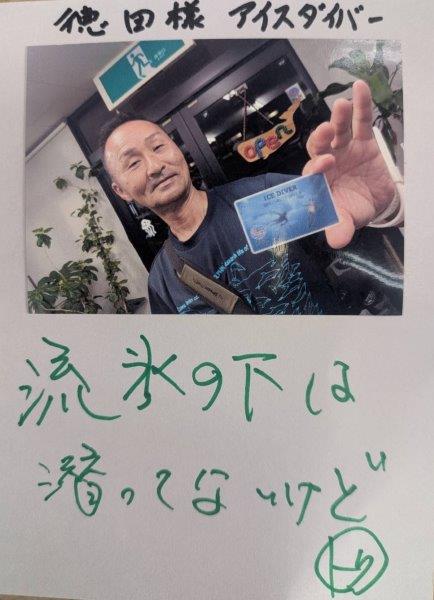 徳田様 アイスダイバー
open
ICE DIVER
流氷の下は
潜ってないけど
トク